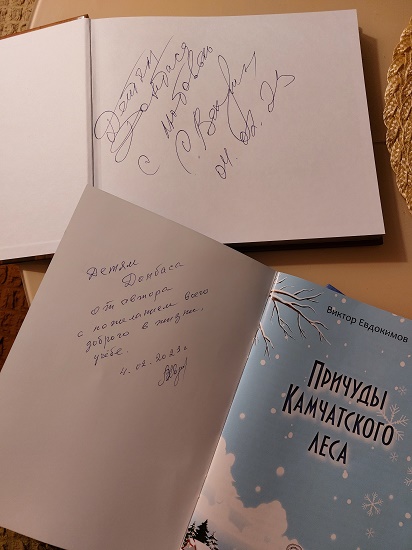 Детям
Донбасса
с любовью
04.02.23
Детям
Донбаса
от автора
с пожеланием всего
доброго в жизни,
учёбе.
4-02-2023г.
Виктор Евдокимов
Причуды
Камчатского
леса